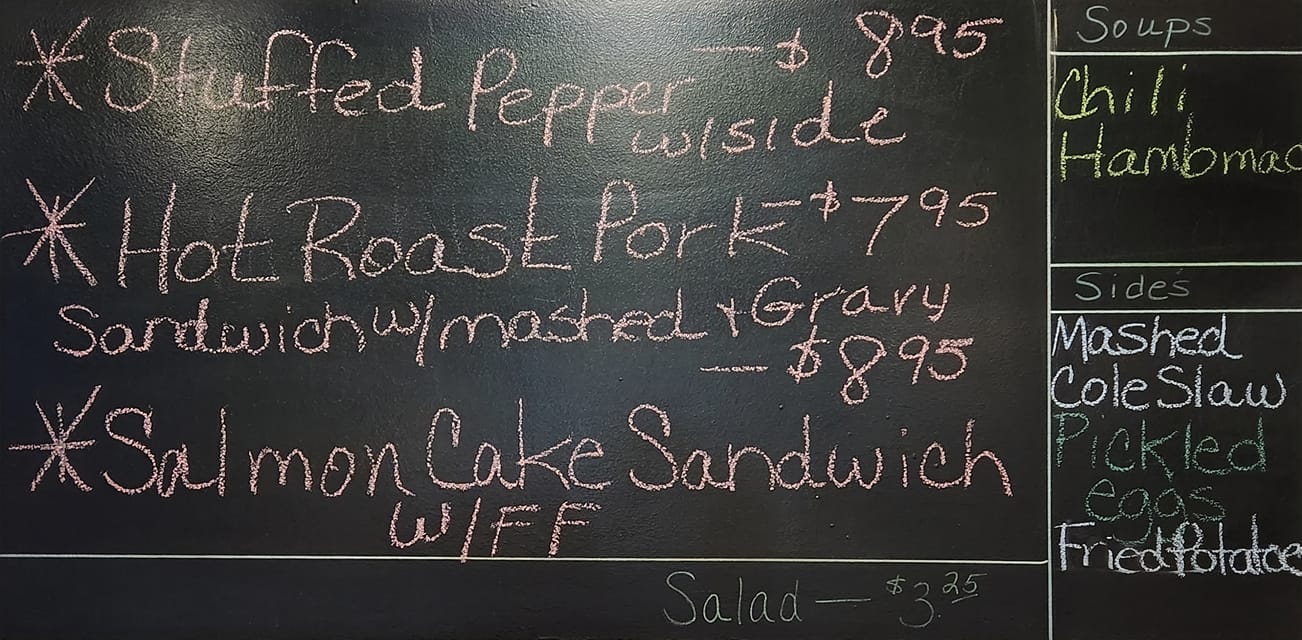 * Stuffed Pepper — $ 8 95
w/side
* Hot Roast Pork - $ 7 95
Sandwich w/mashed + Gravy
— $ 8 95
* Salmon Cake Sandwich
w/FF
Salad — $ 3. 25
Soups
Chili
Hambmac
Sides
Mashed
Cole Slaw
Pickled
eggs
Fried Potatoes